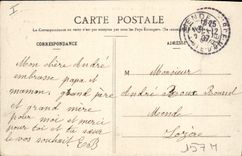 I
CARTE POSTALE
La Correspondance au recto n'est pas acceptée par tous les Pays Etrangers. (Se renseigner à la Poste)
CORRESPONDANCE
ADRESSE
MENDE
LOZERE
Mon chère André
embrasse papa et
maman, grand père
et grand mère
pour moi et merci
pour toi et ta sœur
le vos souhait
Monsieur
André Roux Bonnel
Mende
Lozère
1574